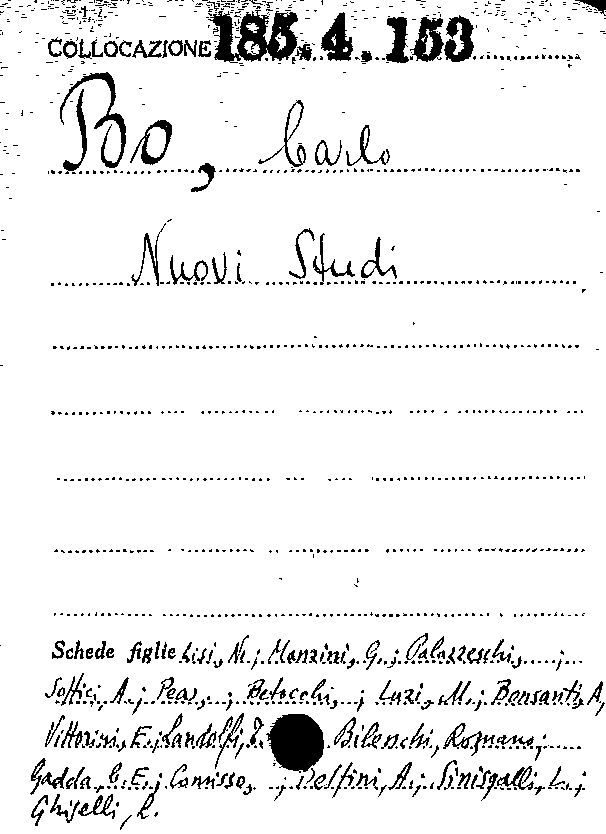 COLLOCAZIONE 185.4.153
Bo, Carlo
Nuovi Studi
Schede figlie Lisi, N.; Manzini, G.; Palazzeschi, ;
Soffici, A.; Pea, ; Betocchi, ; Luzi, M.; Bonsanti, A,
Vittorini, E.; Landolfi, T. Bilenchi, Romano;
Gadda, C. E.; Comisso, ; Delfini, A.; Sinisgalli, L.;
Ghiselli, L.